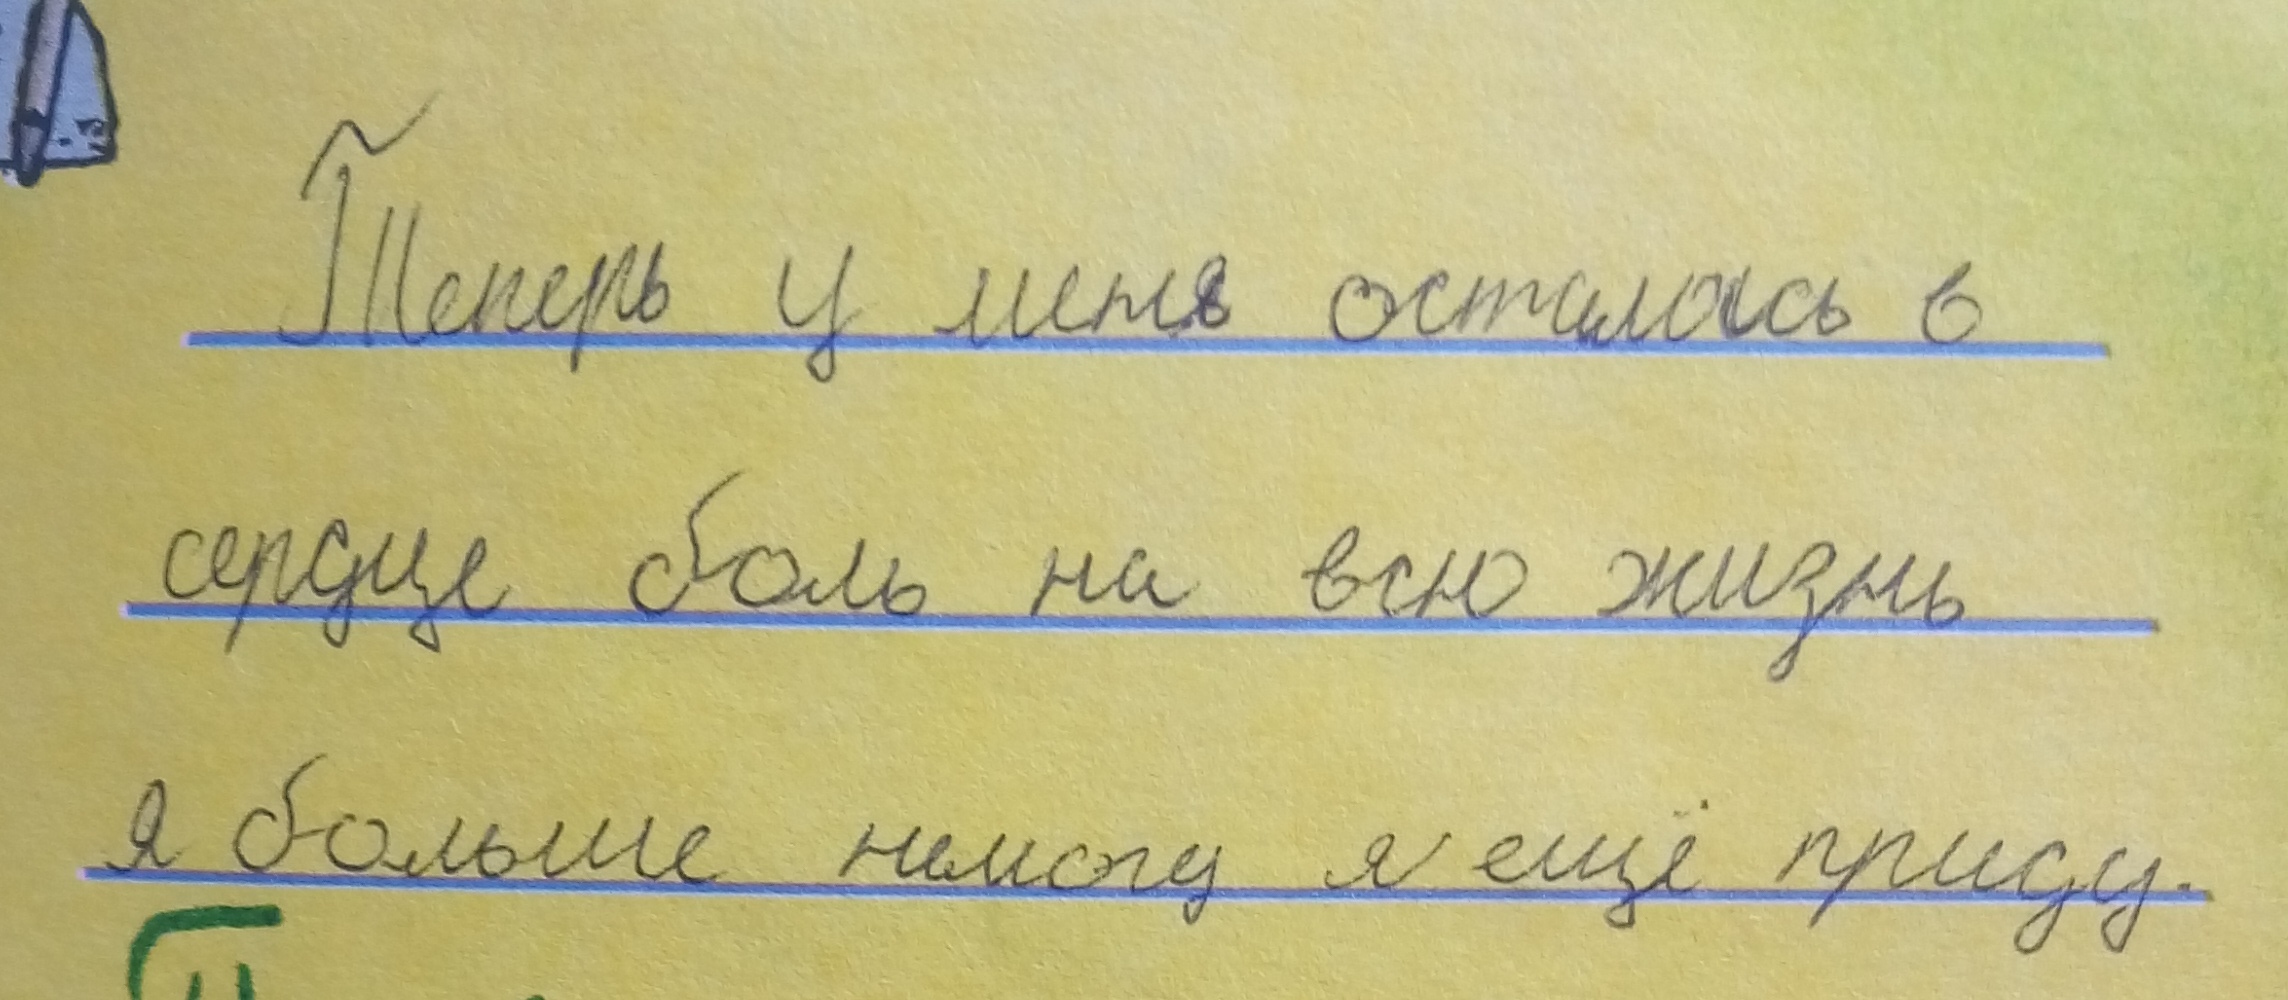 Теперь у меня осталась в
сердце боль на всю жизнь
я больше немогу я ещё приду.